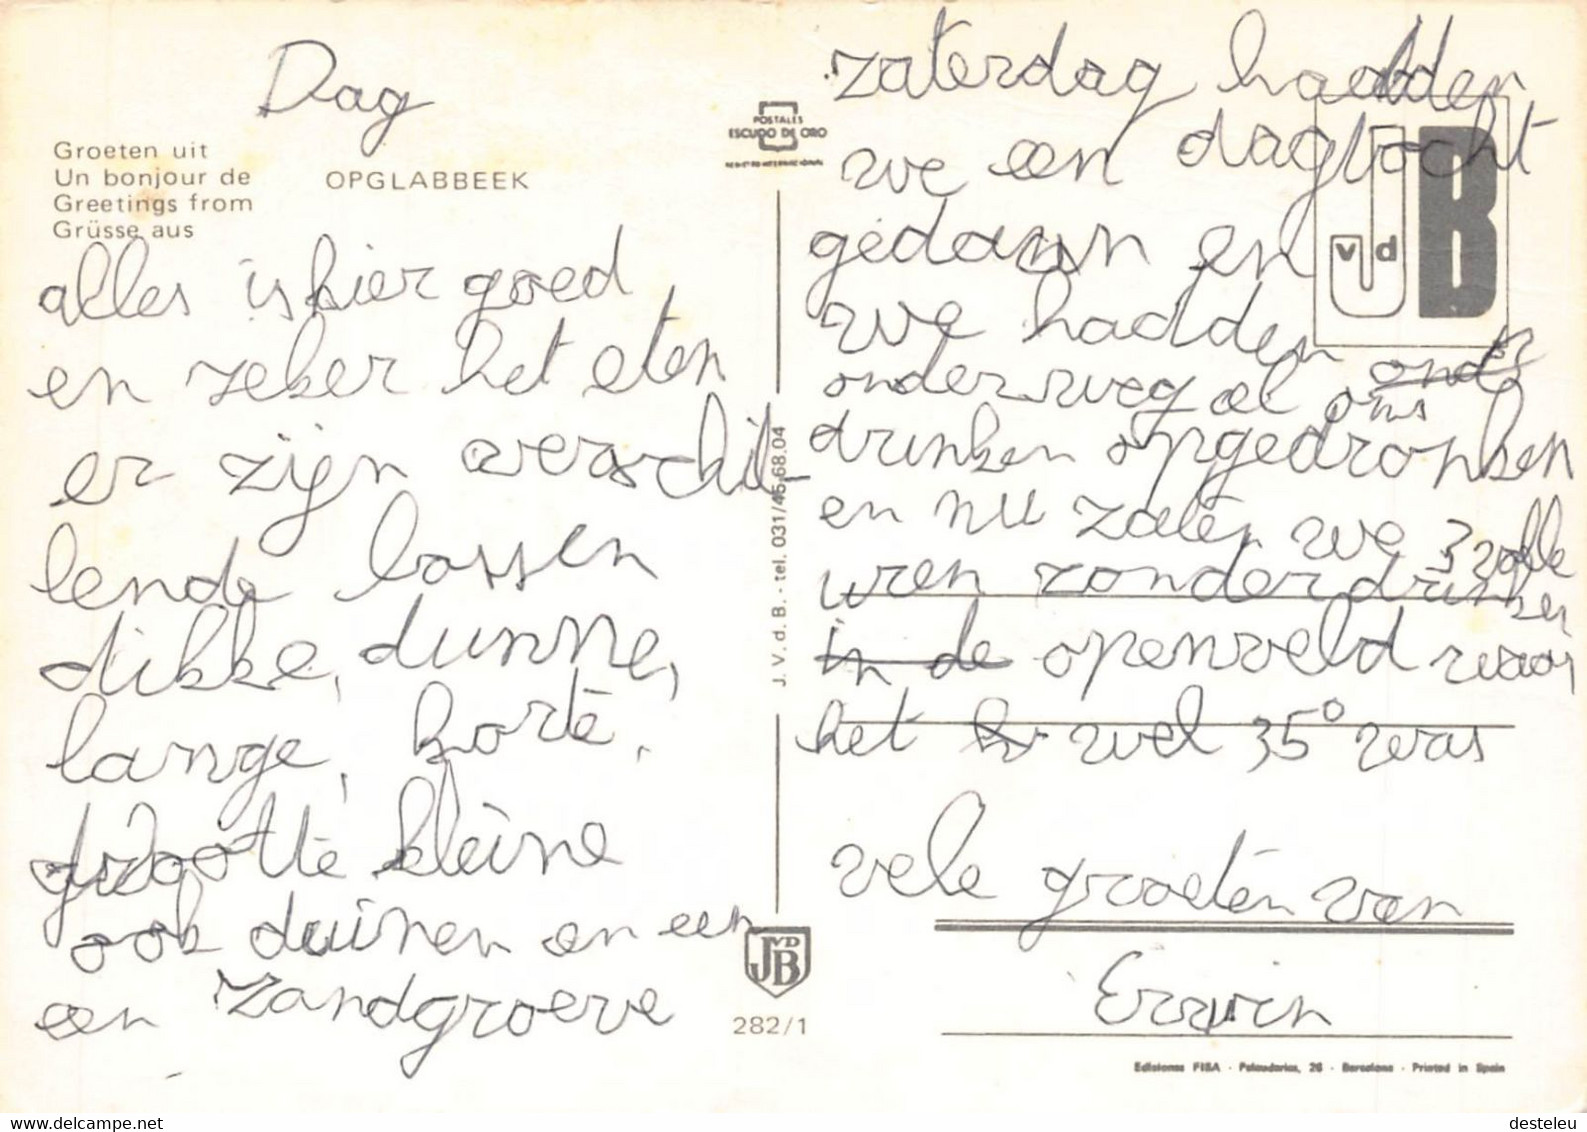 Dag
Groeten uit
Un bonjour de
Greetings from
Grüsse aus
OPGLABBEEK
alles is hier goed
en zeker het eten
er zijn verschil-
lende bossen
dikke, dunne,
lange, korte,
grootte kleine
ook duinen en een
een zandgroeve
POSTALES
ESCUDO DE ORO
REGISTRO INTERNACIONAL
J. V. d. B. - tel. 031/45.68.04
JVDB
282/1
J vd B
zaterdag hadden
we een dagtocht
gedaan en
we hadden
onderweg al ons
drinken opgedronken
en nu zaten we 3 volle
uren zonder drinken
in de openveld waar
het wel 35° was
vele groeten van
Erwin
Ediciones FISA - Palaudarias, 26 - Barcelona - Printed in Spain
delcampe.net
desteleu